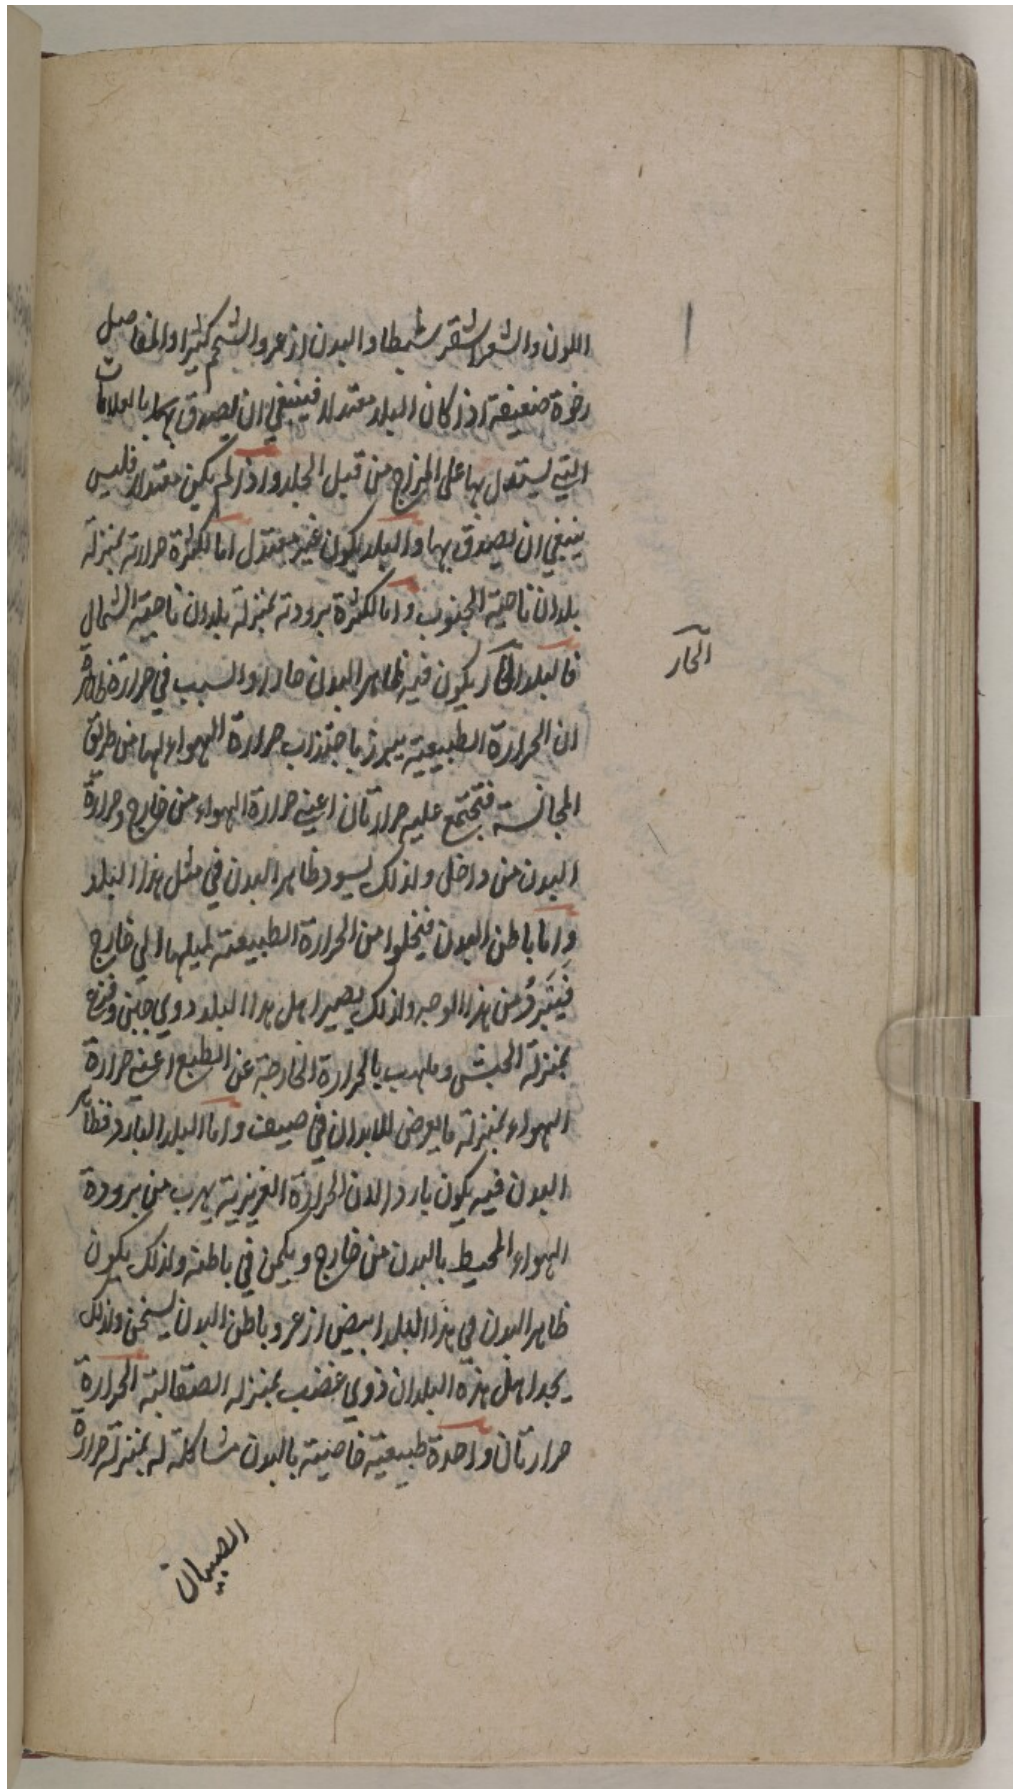 اللون والشعر اشقر سبطا والبدن ازعر والشحم كثيرا والمفاصل
رخوة ضعيفة اذا كان البلد معتدلا فينبغي ان يصدق بها بالعلامات
التي يستدل بها على المزاج من قبل الجلد واذا لم يكن معتدلا فليس
ينبغي ان يصدق بها والبلد يكون غير معتدل اما لكثرة حرارته بمنزلة
بلدان ناحية الجنوب واما لكثرة برودته بمنزلة بلدان ناحية الشمال
فالبلد الحار يكون فيه ظاهر البدن حارا والسبب في حرارة ظاهره
الحار
ان الحرارة الطبيعية يبرز باجتذاب حرارة الهواء لها من طريق
المجانسة فتجتمع عليه حرارتان اعني حرارة الهواء من خارج وحرارة
البدن من داخل ولذلك يسود ظاهر البدن في مثل هذا البلد
واما باطن البدن فيخلوا من الحرارة الطبيعية لميلها الى خارج
فيبرد من هذا الوجه ولذلك يصير اهل هذا البلد ذوي جبن وفزع
بمنزلة الحبش ويلهب بالحرارة الخارجة عن الطبع اعني حرارة
الهواء بمنزلة ما يعرض للابدان في صيف واما البلد البارد فظاهر
البدن فيه يكون باردا لان الحرارة الغريزية يهرب من برودة
الهواء المحيط بالبدن من خارج ويكمن في باطنه ولذلك يكون
ظاهر البدن في هذا البلد ابيض ازعر وباطن البدن يسخن ولذلك
يجد اهل هذه البلدان ذوي غضب بمنزلة الصقالبة الحرارة
حرارتان واحدة طبيعية خاصية بالبدن مشاكلة له بمنزلة حرارة
الصبيان